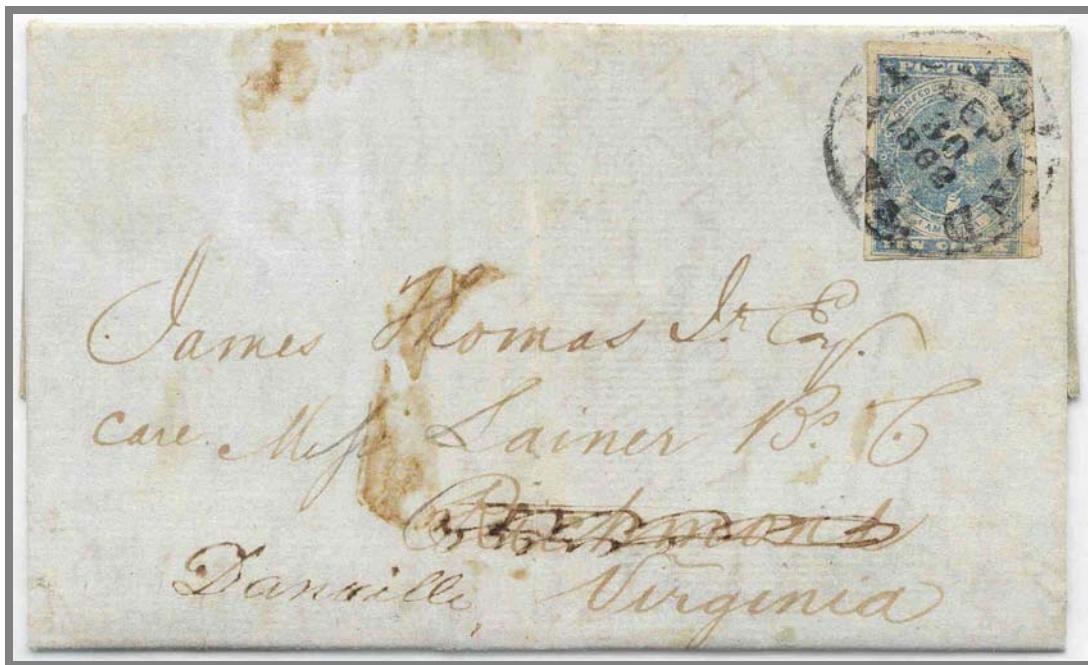 POSTAGE
SEP
10
TEN CENTS
James Thomas Jr. Esq.
care Messrs Lainer B. & C
Richmond
Danville, Virginia